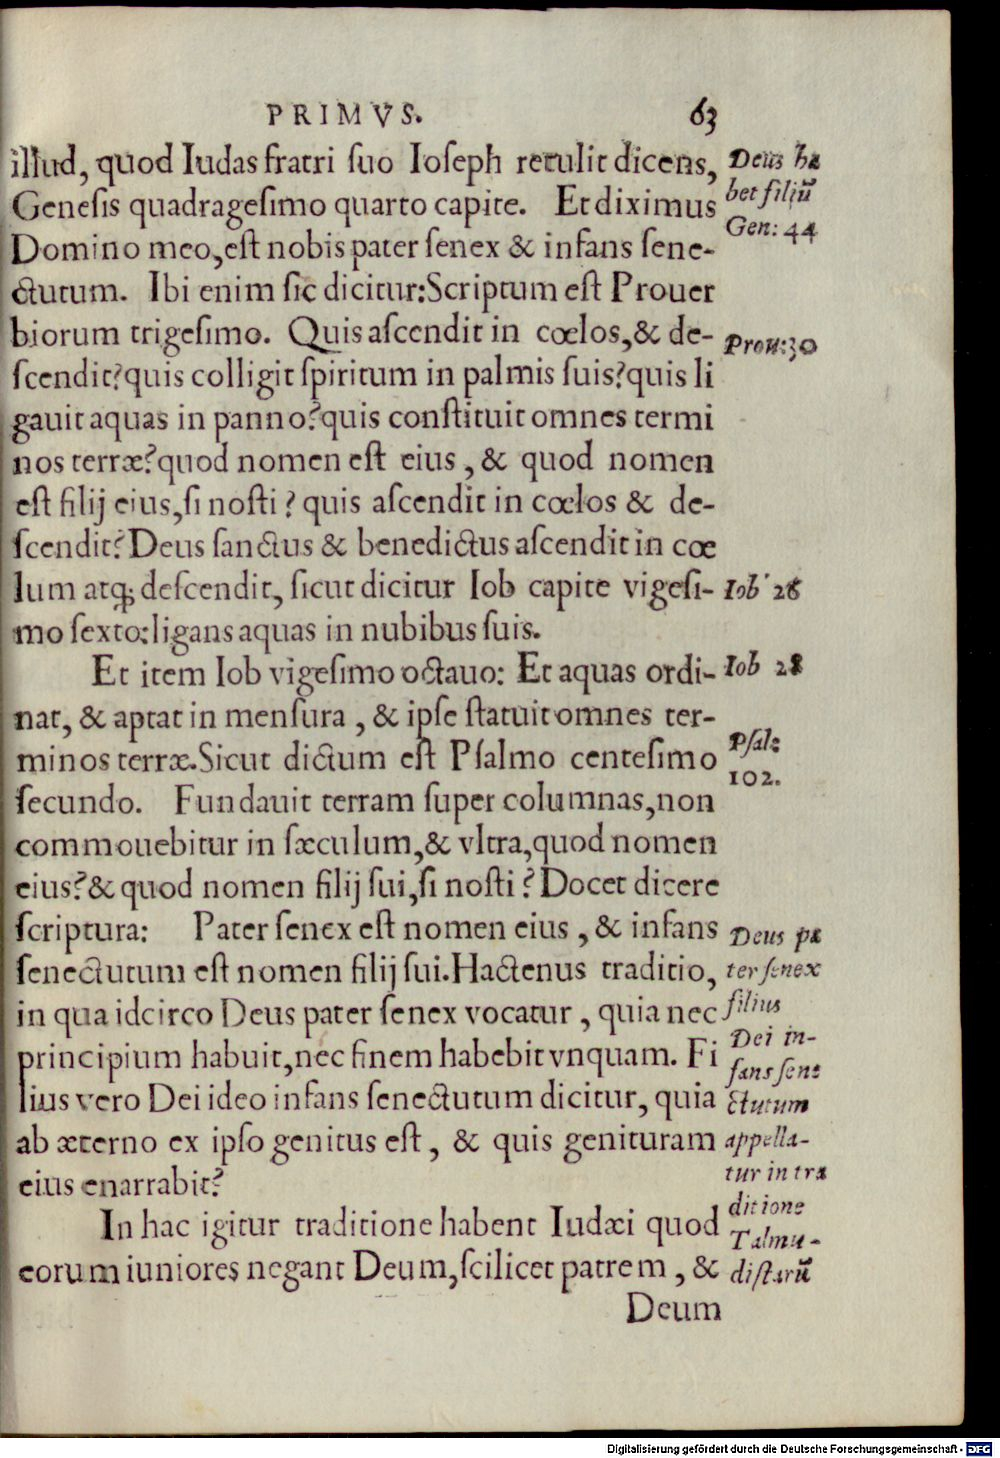 PRIMVS. 63
illud, quod Iudas fratri ſuo Ioſeph retulit dicens,
Geneſis quadrageſimo quarto capite. Et diximus
Domino meo, eſt nobis pater ſenex & infans ſene-
ctutum. Ibi enim ſic dicitur: Scriptum eſt Prouer
biorum trigeſimo. Quis aſcendit in cœlos, & de-
ſcendit? quis colligit ſpiritum in palmis ſuis? quis li
gauit aquas in panno? quis conſtituit omnes termi
nos terræ? quod nomen eſt eius, & quod nomen
eſt filij eius, ſi noſti? quis aſcendit in cœlos & de-
ſcendit? Deus ſanctus & benedictus aſcendit in cœ
lum atq; deſcendit, ſicut dicitur Iob capite vigeſi-
mo ſexto: ligans aquas in nubibus ſuis.
Et item Iob vigeſimo octauo: Et aquas ordi-
nat, & aptat in menſura, & ipſe ſtatuit omnes ter-
minos terræ. Sicut dictum eſt Pſalmo centeſimo
ſecundo. Fundauit terram ſuper columnas, non
commouebitur in ſæculum, & vltra, quod nomen
eius? & quod nomen filij ſui, ſi noſti? Docet dicere
ſcriptura: Pater ſenex eſt nomen eius, & infans
ſenectutum eſt nomen filij ſui. Hactenus traditio,
in qua idcirco Deus pater ſenex vocatur, quia nec
principium habuit, nec finem habebit vnquam. Fi
lius vero Dei ideo infans ſenectutum dicitur, quia
ab æterno ex ipſo genitus eſt, & quis genituram
eius enarrabit?
In hac igitur traditione habent Iudæi quod
eorum iuniores negant Deum, ſcilicet patrem, &
Deum
Deus ha
bet filiū
Gen: 44
Prou: 30
Iob 26
Iob 28
Pſal:
102.
Deus pa
ter ſenex
filius
Dei in-
fans ſene
ctutum
appella-
tur in tra
ditione
Talmu-
diſtarū
Digitalisierung gefördert durch die Deutsche Forschungsgemeinschaft - DFG